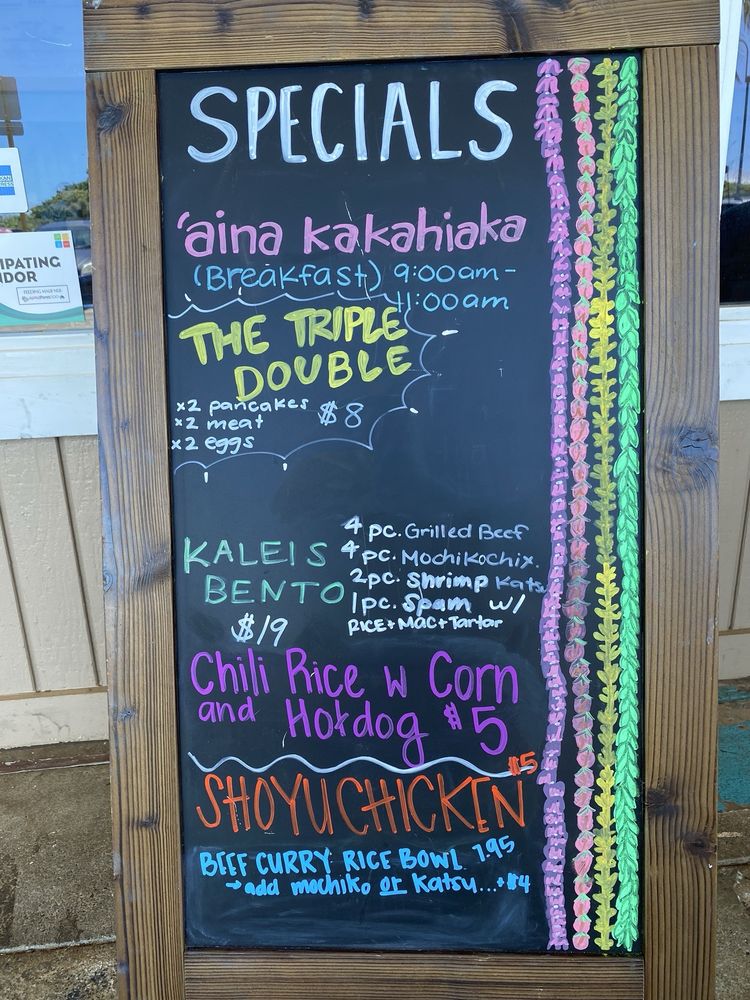 SPECIALS
'aina kakahiaka
(Breakfast) 9:00am-
11:00am
THE TRIPLE
DOUBLE
x2 pancakes $8
x2 meat
x2 eggs
KALEIS
BENTO
$19
4 pc. Grilled Beef
4 pc. Mochikochix.
2pc. Shrimp Katsu
1pc. Spam w/
RICE+MAC+Tartar
Chili Rice w Corn
and Hotdog $5
SHOYUCHICKEN $5
BEEF CURRY RICE BOWL 7.95
→ add mochiko or Katsu...+$4
IPATING
NDOR